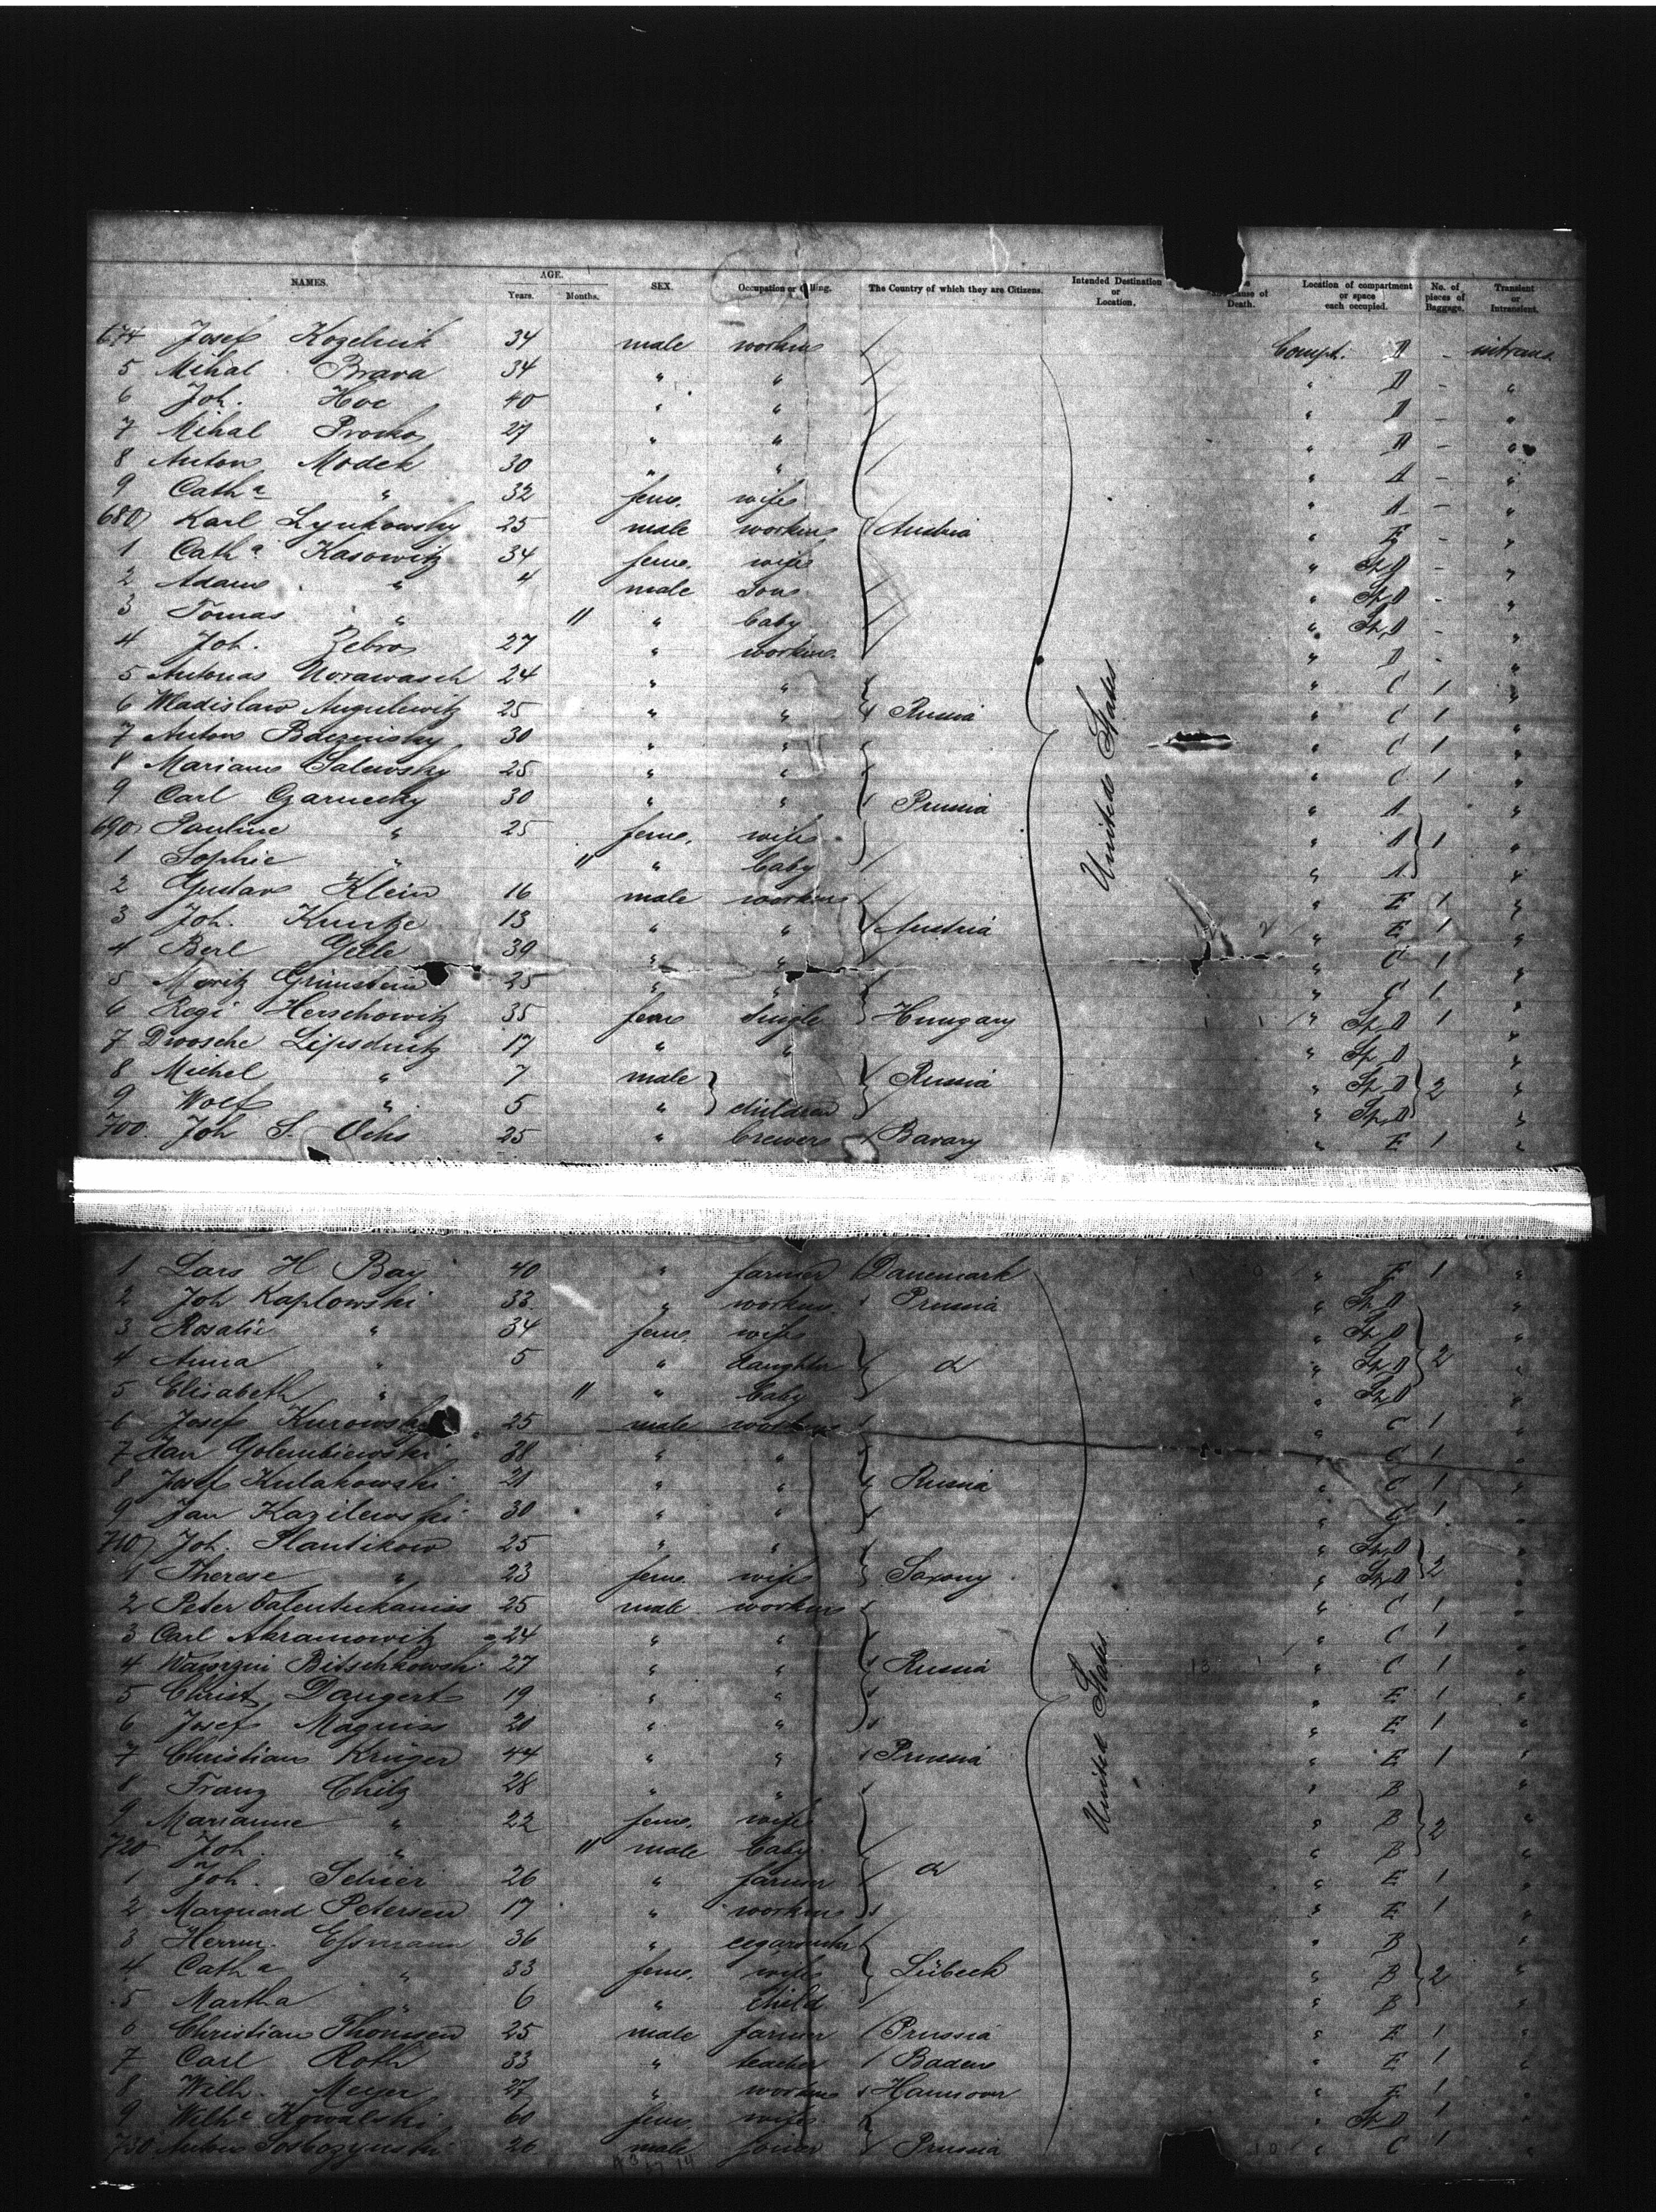 NAMES. AGE. Years. Months. SEX. Occupation or Calling. The Country of which they are Citizens. Intended Destination or Location. Death. Location of compartment or space each occupied. No. of pieces of Baggage. Transient or Intransient.
674 Josef Kozelnik 34 male workm Compt. D - intrans
5 Mihal Brava 34 " " " D - "
6 Joh. Hoc 40 " " " D - "
7 Mihal Procko 27 " " " D - "
8 Anton Modek 30 " " " A - "
9 Catha " 32 fem. wife " A - "
680 Karl Lynkowsky 25 male workm Austria " E - "
1 Catha Kasowitz 34 fem. wife " St D - "
2 Adam " 4 male son " St D - "
3 Tomas " 11 " baby " St D - "
4 Joh. Zebro 27 " workm. " D - "
5 Antonas Norawasch 24 " " " C 1 "
6 Wladislaw Angulewitz 25 " " Russia " C 1 "
7 Anton Baczensky 30 " " " C 1 "
8 Mariane Salewsky 25 " " " C 1 "
9 Carl Czarnecky 30 " " Prussia " A "
690 Pauline " 25 fem. wife " A 1 "
1 Sophie " 11 " baby " A "
2 Gustav Klein 16 male workm " E 1 "
3 Joh. Kuntze 13 " " Austria " E 1 "
4 Berl Gelle 39 " " " C 1 "
5 Moritz Grünstein 25 " " " C 1 "
6 Regi Herschowitz 35 fem single Hungary " St D 1 "
7 Dwosche Lipschitz 17 " " " St D "
8 Michel " 7 male Russia " St D 2 "
9 Wolf " 5 " children " St D "
700. Joh S. Ochs 25 " brewer Bavary " E 1 "
United States
1 Lars H Bay 40 " farmer Danemark " E 1 "
2 Joh Kaplowski 33 " workm Prussia " St D "
3 Rosalie " 34 fem. wife " St D "
4 Anna " 5 " daughter do " St D 2 "
5 Elisabeth " 11 " baby " St D "
6 Josef Kurowsky 25 male workm " C 1 "
7 Jan Golembiewski 38 " " " C 1 "
8 Josef Kulakowski 21 " " Russia " C 1 "
9 Jan Kazilewski 30 " " " C 1 "
710 Joh. Plantikow 25 " " " St D "
1 Therese " 23 fem. wife Saxony " St D 2 "
2 Peter 25 male workm " C 1 "
3 Carl Abramowitz 24 " " " C 1 "
4 Bitschkowski 27 " " Russia " C 1 "
5 Christ. Daugert 19 " " " E 1 "
6 Josef Maguiss 20 " " " E 1 "
7 Christian Krüger 44 " " Prussia " E 1 "
8 Franz Chilz 28 " " " B "
9 Marianne " 22 fem. wife " B 2 "
720 Joh. " 11 male baby " B "
1 Joh. Schier 26 " farmer do " E 1 "
2 Marquard Petersen 17 " workm " E 1 "
3 Herrm. Essmann 36 " " B "
4 Catha " 33 fem. wife Lübeck " B 2 "
5 Martha " 6 " child " B "
6 Christian Thomsen 25 male farmer Prussia " E 1 "
7 Carl Roth 33 " teacher Baden " E 1 "
8 Wilh. Meyer 27 " workm Hannover " E 1 "
9 Wilhe Kowalski 60 fem. wife " St D 1 "
730 Anton 26 male joiner Prussia " C 1 "
United States